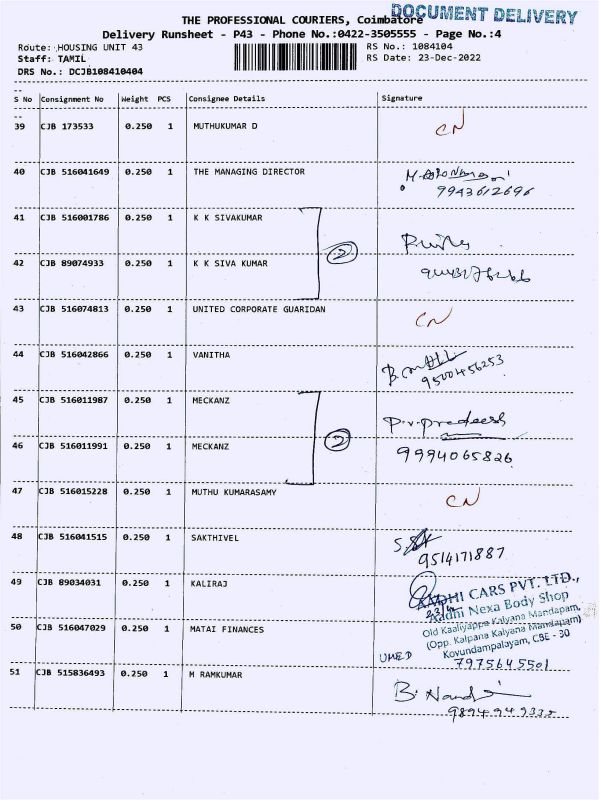 DOCUMENT DELIVERY
THE PROFESSIONAL COURIERS, Coimbatore
Delivery Runsheet - P43 - Phone No.:0422-3505555 - Page No.:4
Route: HOUSING UNIT 43 RS No.: 1084104
Staff: TAMIL RS Date: 23-Dec-2022
DRS No.: DCJB108410404
S No Consignment No Weight PCS Consignee Details Signature
39 CJB 173533 0.250 1 MUTHUKUMAR D CN
40 CJB 516041649 0.250 1 THE MANAGING DIRECTOR
9943612696
41 CJB 516001786 0.250 1 K K SIVAKUMAR
2
42 CJB 89074933 0.250 1 K K SIVA KUMAR
43 CJB 516074813 0.250 1 UNITED CORPORATE GUARIDAN CN
44 CJB 516042866 0.250 1 VANITHA
9500456253
45 CJB 516011987 0.250 1 MECKANZ
P.V. Pradeesh
2
46 CJB 516011991 0.250 1 MECKANZ 9994065826
47 CJB 516015228 0.250 1 MUTHU KUMARASAMY CN
48 CJB 516041515 0.250 1 SAKTHIVEL
9514171887
49 CJB 89034031 0.250 1 KALIRAJ
AADHI CARS PVT. LTD.,
Aadhi Nexa Body Shop
Old Kaaliyappa Kalyana Mandapam,
(Opp. Kalpana Kalyana Mandapam)
Kovundampalayam, CBE - 30
50 CJB 516047029 0.250 1 MATAI FINANCES
UMED
7975645501
51 CJB 515836493 0.250 1 M RAMKUMAR